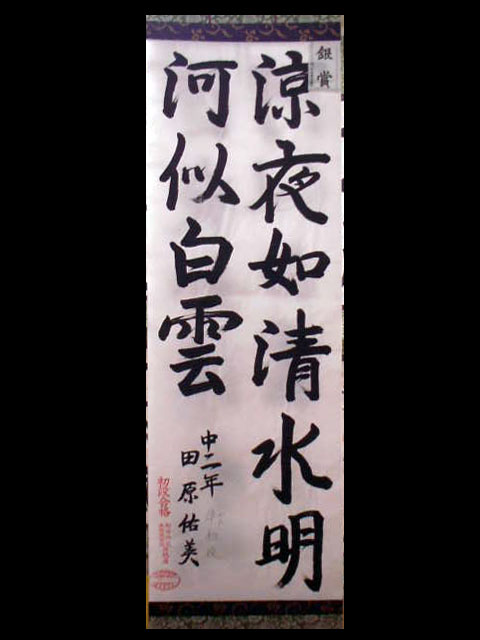 銀賞
涼夜如清水明
河似白雲
中二年
田原佑美
初段合格